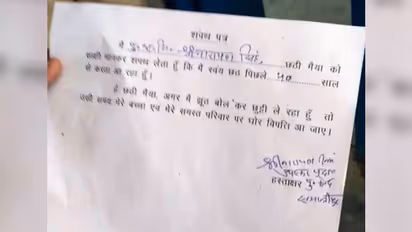 शपथ पत्र
मै श्रीनारायण सिंह छठी मैया को
साक्षी मानकर शपथ लेता हूँ कि मै स्वयं छठ पिछले 10 साल
से करता आ रहा हूँ।
हे छठी मैया, अगर मैं झूठ बोल कर छुट्टी ले रहा हूँ तो
उसी समय मेरे बच्चा एवं मेरे समस्त परिवार पर घोर विपत्ति आ जाए।
श्रीनारायण सिंह
हस्ताक्षर